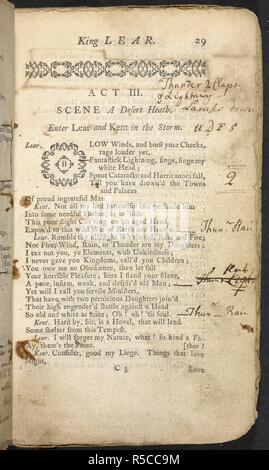 King LEAR. 29
Thunder & Claps
of Lightning
ACT III.
Lamps down
SCENE A Desert Heath.
Enter Lear and Kent in the Storm. UDPS
Lear. BLOW Winds, and burst your Cheeks,
rage louder yet,
Fantastick Lightning, singe, singe my
white Head;
Spout Cataracts and Hurricanes fall,
Till you have drown'd the Towns
and Palaces
Of proud ingrateful Man.
Kent. Not all my best intreaties can perswade him
Into some needful Shelter, or to 'bide
This poor slight Cov'ring on his aged Head,
Expos'd to this wild War of Earth and Heav'n.
Lear. Rumble thy fill, fight Whirlwind, Rain and Fire;
Not Fire, Wind, Rain, or Thunder are my Daughters:
I tax not you, ye Elements, with Unkindness;
I never gave you Kingdoms, call'd you Children;
You owe me no Obedience, then let fall
Your horrible Pleasure; here I stand your Slave,
A poor, infirm, weak, and despis'd old Man;
Yet will I call you servile Ministers,
That have, with two pernicious Daughters join'd
Their high engender'd Battle against a Head
So old and white as mine; Oh! oh! 'tis foul.
Thun.r Rain
Kent. Hard by, Sir, is a Hovel, that will lend
Some shelter from this Tempest.
Lear. I will forget my Nature, what! so kind a Fa-
Ay, there's the Point. [ther!
Kent. Consider, good my Liege. Things that love
Night,
C 3 Love